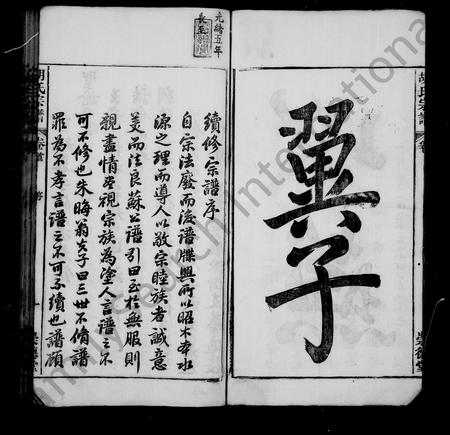 翼子
胡氏宗譜
卷首
光緒五年
長至
續修宗譜序
自宗法廢而後譜牒興所以昭木本水
源之理而導人以敬宗睦族者誠意
美而法良蘇公譜引曰至於無服則
親盡情盡視宗族為塗人言譜之不
可不修也朱晦翁夫子曰三世不脩譜
罪為不孝言譜之不可不續也譜顧
胡氏宗譜
卷首
序
一